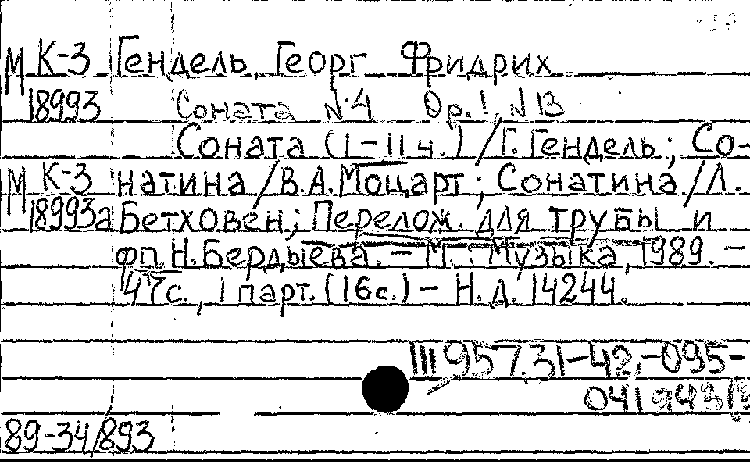 М К-3 Гендель, Георг Фридрих
18993 Соната №4 Ор.1, №13
Соната (I-II ч.) / Г. Гендель; Со-
М К-3 натина / В.А. Моцарт; Сонатина / Л.
18993а Бетховен; Перелож. для трубы и
фп. Н. Бердыева. – М.: Музыка, 1989. –
47с., 1 парт. (16с.) – Н.д. 14244.
Ш 957.31-42,-095-
041
89-34/893